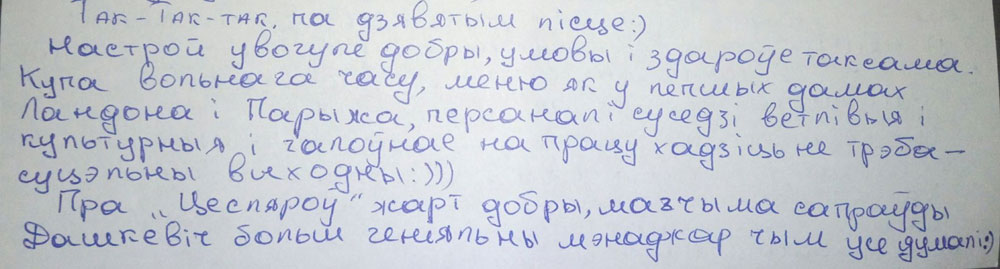 Так-Так-так, на дзявятым лісце:)
Настрой увогуле добры, умовы і здароўе таксама.
Купа вольнага часу, меню як у лепшых дамах
Ландона і Парыжа, персанал і суседзі ветлівыя і
культурныя і галоўнае на працу хадзіць не трэба –
суцэльны выходны:)))
Пра „Цеспяроў“ жарт добры, магчыма сапраўды
Дашкевіч больш геніяльны мэнаджар чым усе думалі:)